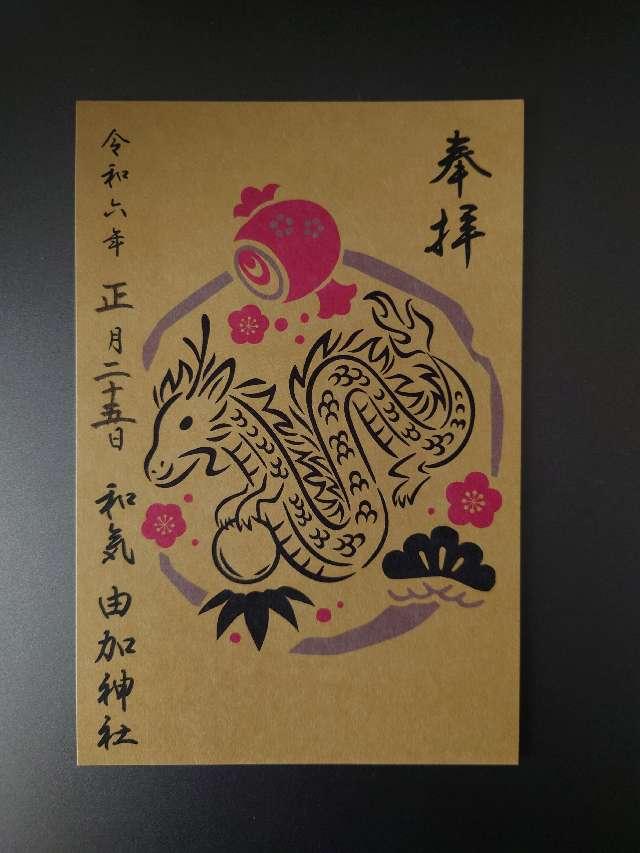 奉拝
令和六年 正月二十五日 和気 由加神社